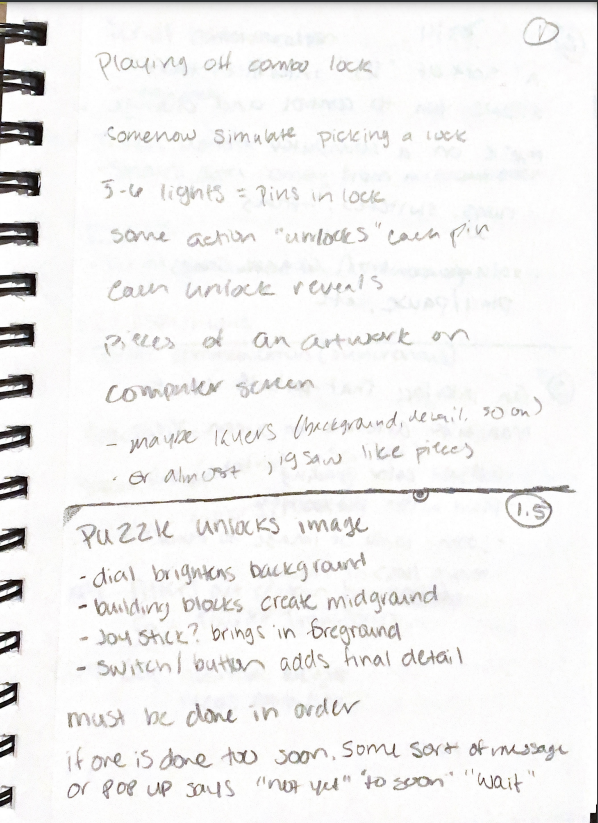 1
Playing off combo lock
Somehow simulate picking a lock
5-6 lights = pins in lock
some action "unlocks" each pin
Each unlock reveals
pieces of an artwork on
computer screen
- maybe layers (background, detail, so on)
- or almost jigsaw like pieces
1.5
Puzzle unlocks image
- dial brightens background
- building blocks create midground
- Joystick? brings in foreground
- switch/button adds final detail
must be done in order
if one is done too soon. Some sort of message
or pop up says "not yet" "to soon" "wait"